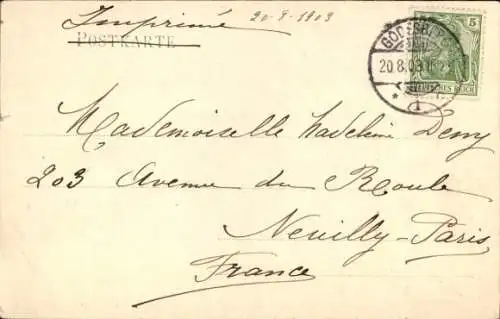 Imprimé 20-8-1903
POSTKARTE
5
GODESBERG
20.8.03
DEUTSCHES REICH
* d
Mademoiselle Madeleine Demy
203 Avenue du Roule
Neuilly-Paris
France